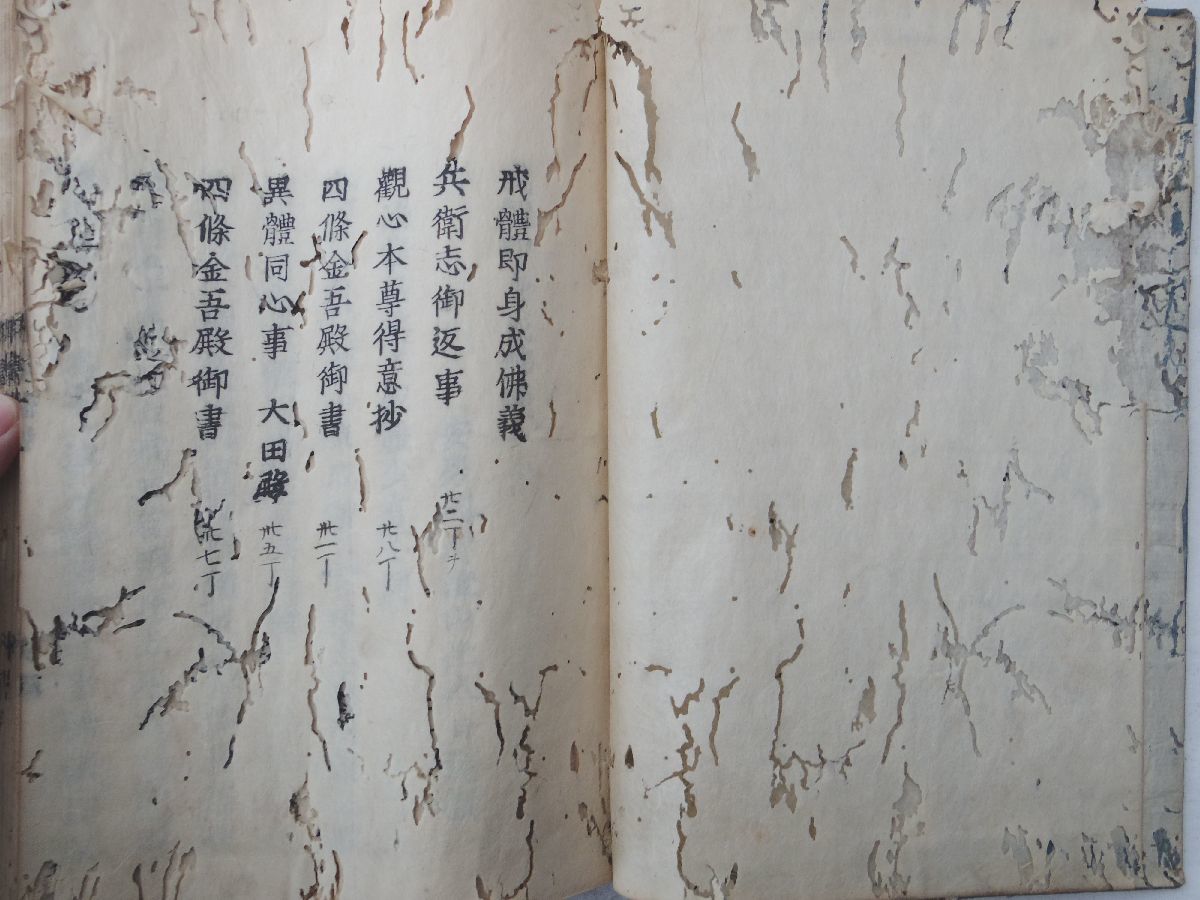 戒體即身成佛義
兵衛志御返事 廿二丁ヲ
觀心本尊得意抄 廿八丁
四條金吾殿御書 卅一丁
異體同心事 大田 卅五丁
四條金吾殿御書 卅七丁